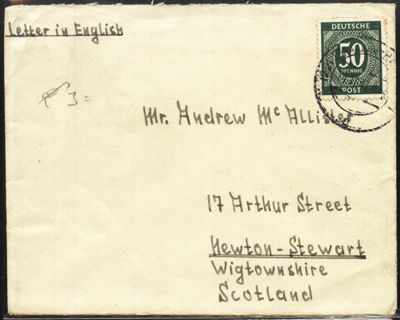 Letter in English
DEUTSCHE
50
PFENNIG
POST
£ 3=
Mr. Andrew Mc Allister
17 Arthur Street
Newton-Stewart
Wigtownshire
Scotland